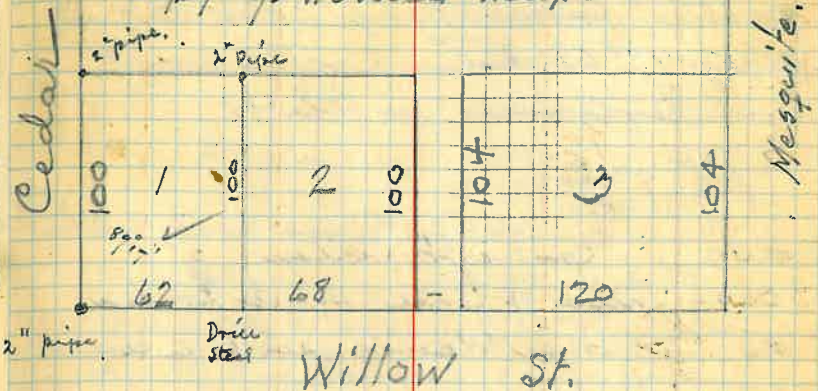 Cedar
2" pipe.
2" Pipe
Mesquite.
100
1
100
2
100
104
3
104
62
68
120
2" pipe
Drill
Steel
Willow St.